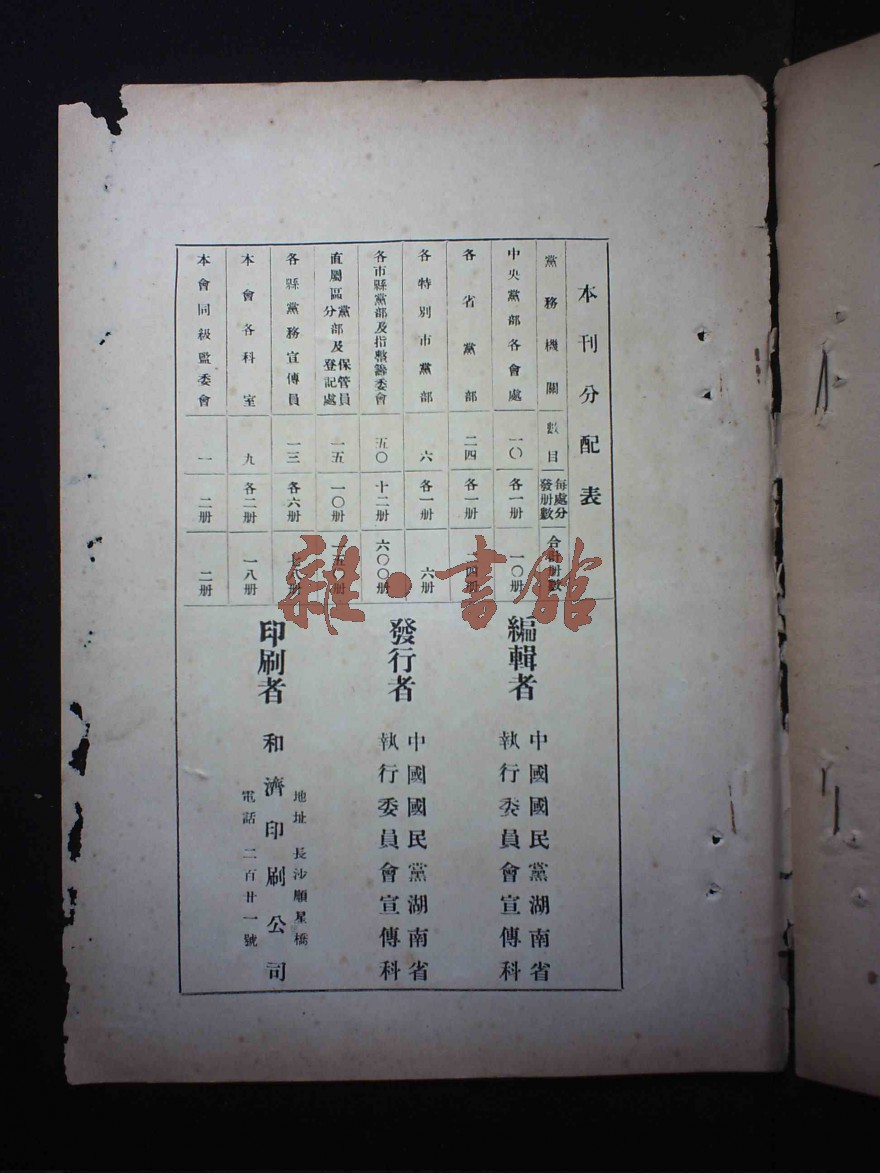 本刊分配表
黨務機關 數目 每處分發册數 合計册數
中央黨部各會處 一〇 各一册 一〇册
各省黨部 二四 各一册 四册
各特別市黨部 六 各一册 六册
各市縣黨部及指整籌委會 五〇 十二册 六〇〇册
直屬區分黨部及登記處保管員 一五 一〇册 五〇册
各縣黨務宣傳員 一三 各六册 七八册
本會各科室 九 各二册 一八册
本會同級監委會 一 二册 二册
編輯者
中國國民黨湖南省
執行委員會宣傳科
發行者
中國國民黨湖南省
執行委員會宣傳科
印刷者
和濟印刷公司
地址 長沙順星橋
電話 二百廿一號
雜·書館